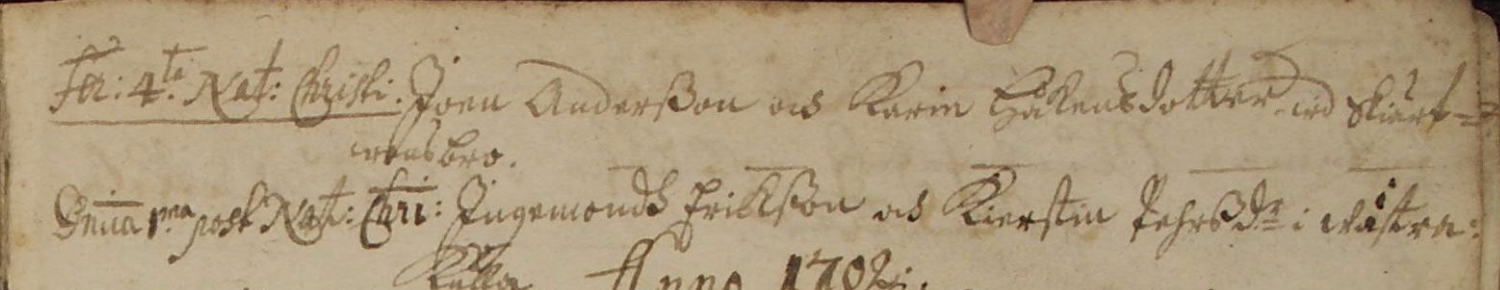 Fer: 4.ta Nat: Christi. Joen Anderßon och Karin Håkensdotter wid Skiarf=
wensbro.
Dnica 1.ma post Nat: Chri: Ingemondh Erickßon och Kierstin Pehrßdr i Wästra:
Kulla
Anno 1702.